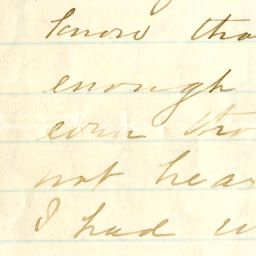 know tha
enough
even tho
not hear
I had w